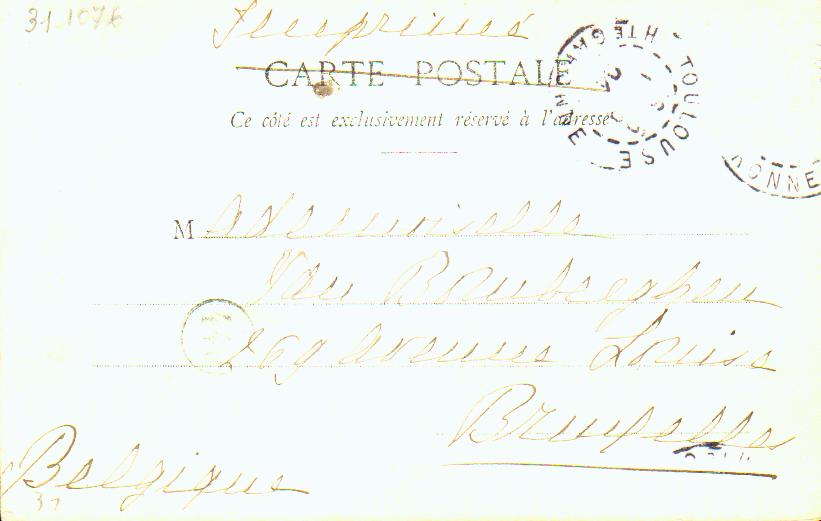 31 1076
Imprimés
CARTE POSTALE
Ce côté est exclusivement réservé à l'adresse
TOULOUSE HTE GARONNE
ONNE
Mademoiselle
Van
269 Avenue Louise
Bruxelles
Belgique